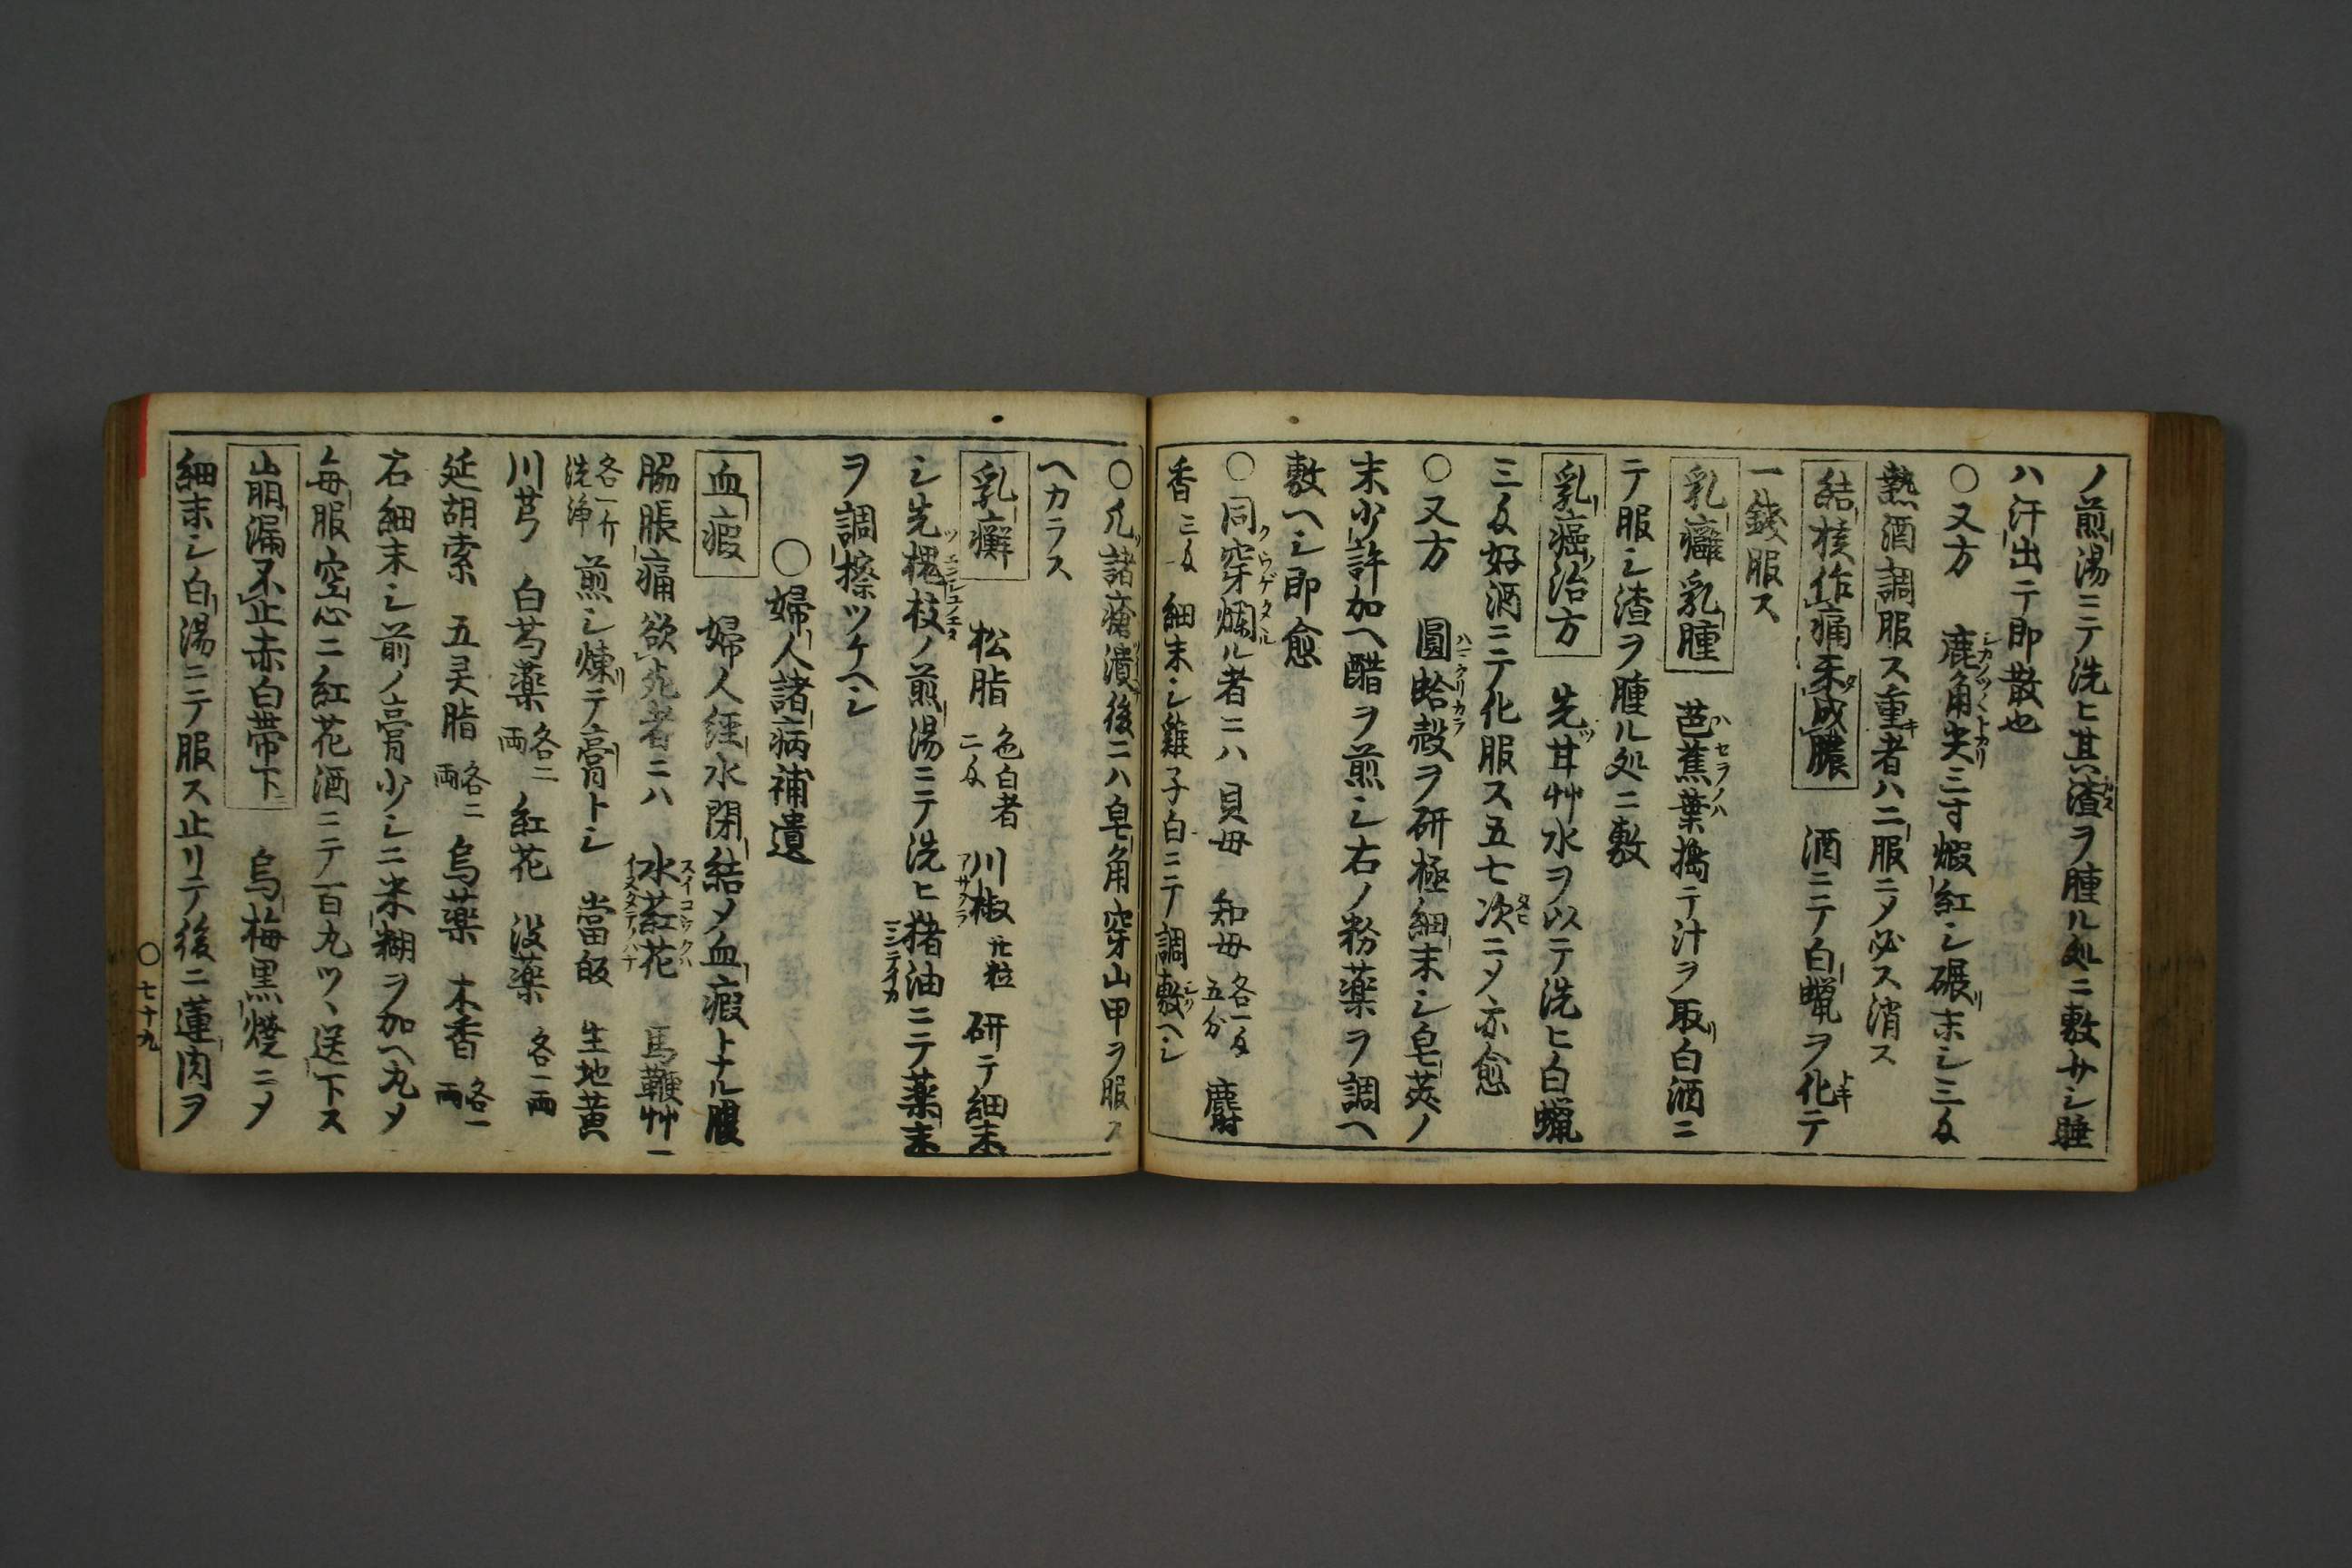 ノ煎湯ニテ洗ヒ其渣ヲ腫ル処ニ敷サシ睡
ハ汗出テ即散也
○又方　鹿角尖三寸煆紅シ碾末シ三匁
熱酒調服ス重者ハ二服ニメ必ス消ス
結核作痛未成膿　酒ニテ白蝋ヲ化テ
一錢服ス
乳癰乳腫　芭蕉葉擣テ汁ヲ取白酒ニ
テ服シ渣ヲ腫ル処ニ敷
乳癌治方　先甘艸水ヲ以テ洗ヒ白蝋
三匁好酒ニテ化服ス五七次ニメ亦愈
○又方　圓蛤殻ヲ研極細末シ皂莢ノ
末少許加ヘ醋ヲ煎シ右ノ粉薬ヲ調ヘ
敷ヘシ即愈
○同穿爛ル者ニハ貝母　知母各一匁五分　麝
香三匁　細末シ雞子白ニテ調敷ヘシ
○凡諸瘡潰後ニハ皂角穿山甲ヲ服ス
ヘカラス
乳癬　松脂色白者二匁　川椒廾粒　研テ細末
シ先槐枝ノ煎湯ニテ洗ヒ猪油ニテ薬末
ヲ調擦ツケヘシ
○婦人諸病補遺
血瘕　婦人經水閉結メ血瘕トナル腹
脇脹痛欲死者ニハ　水葒花　馬鞭艸
各一斤洗浄　煎シ煉テ膏トシ　當皈　生地黄
川芎　白芍薬各二両　紅花　没薬　各一両
延胡索　五灵脂各二両　烏薬　木香各一両
右細末シ前ノ膏少シニ米糊ヲ加ヘ丸メ
毎服空心ニ紅花酒ニテ百丸ツヽ送下ス
崩漏不止赤白帯下　烏梅黒燒ニメ
細末シ白湯ニテ服ス止リテ後ニ蓮肉ヲ
○七十九